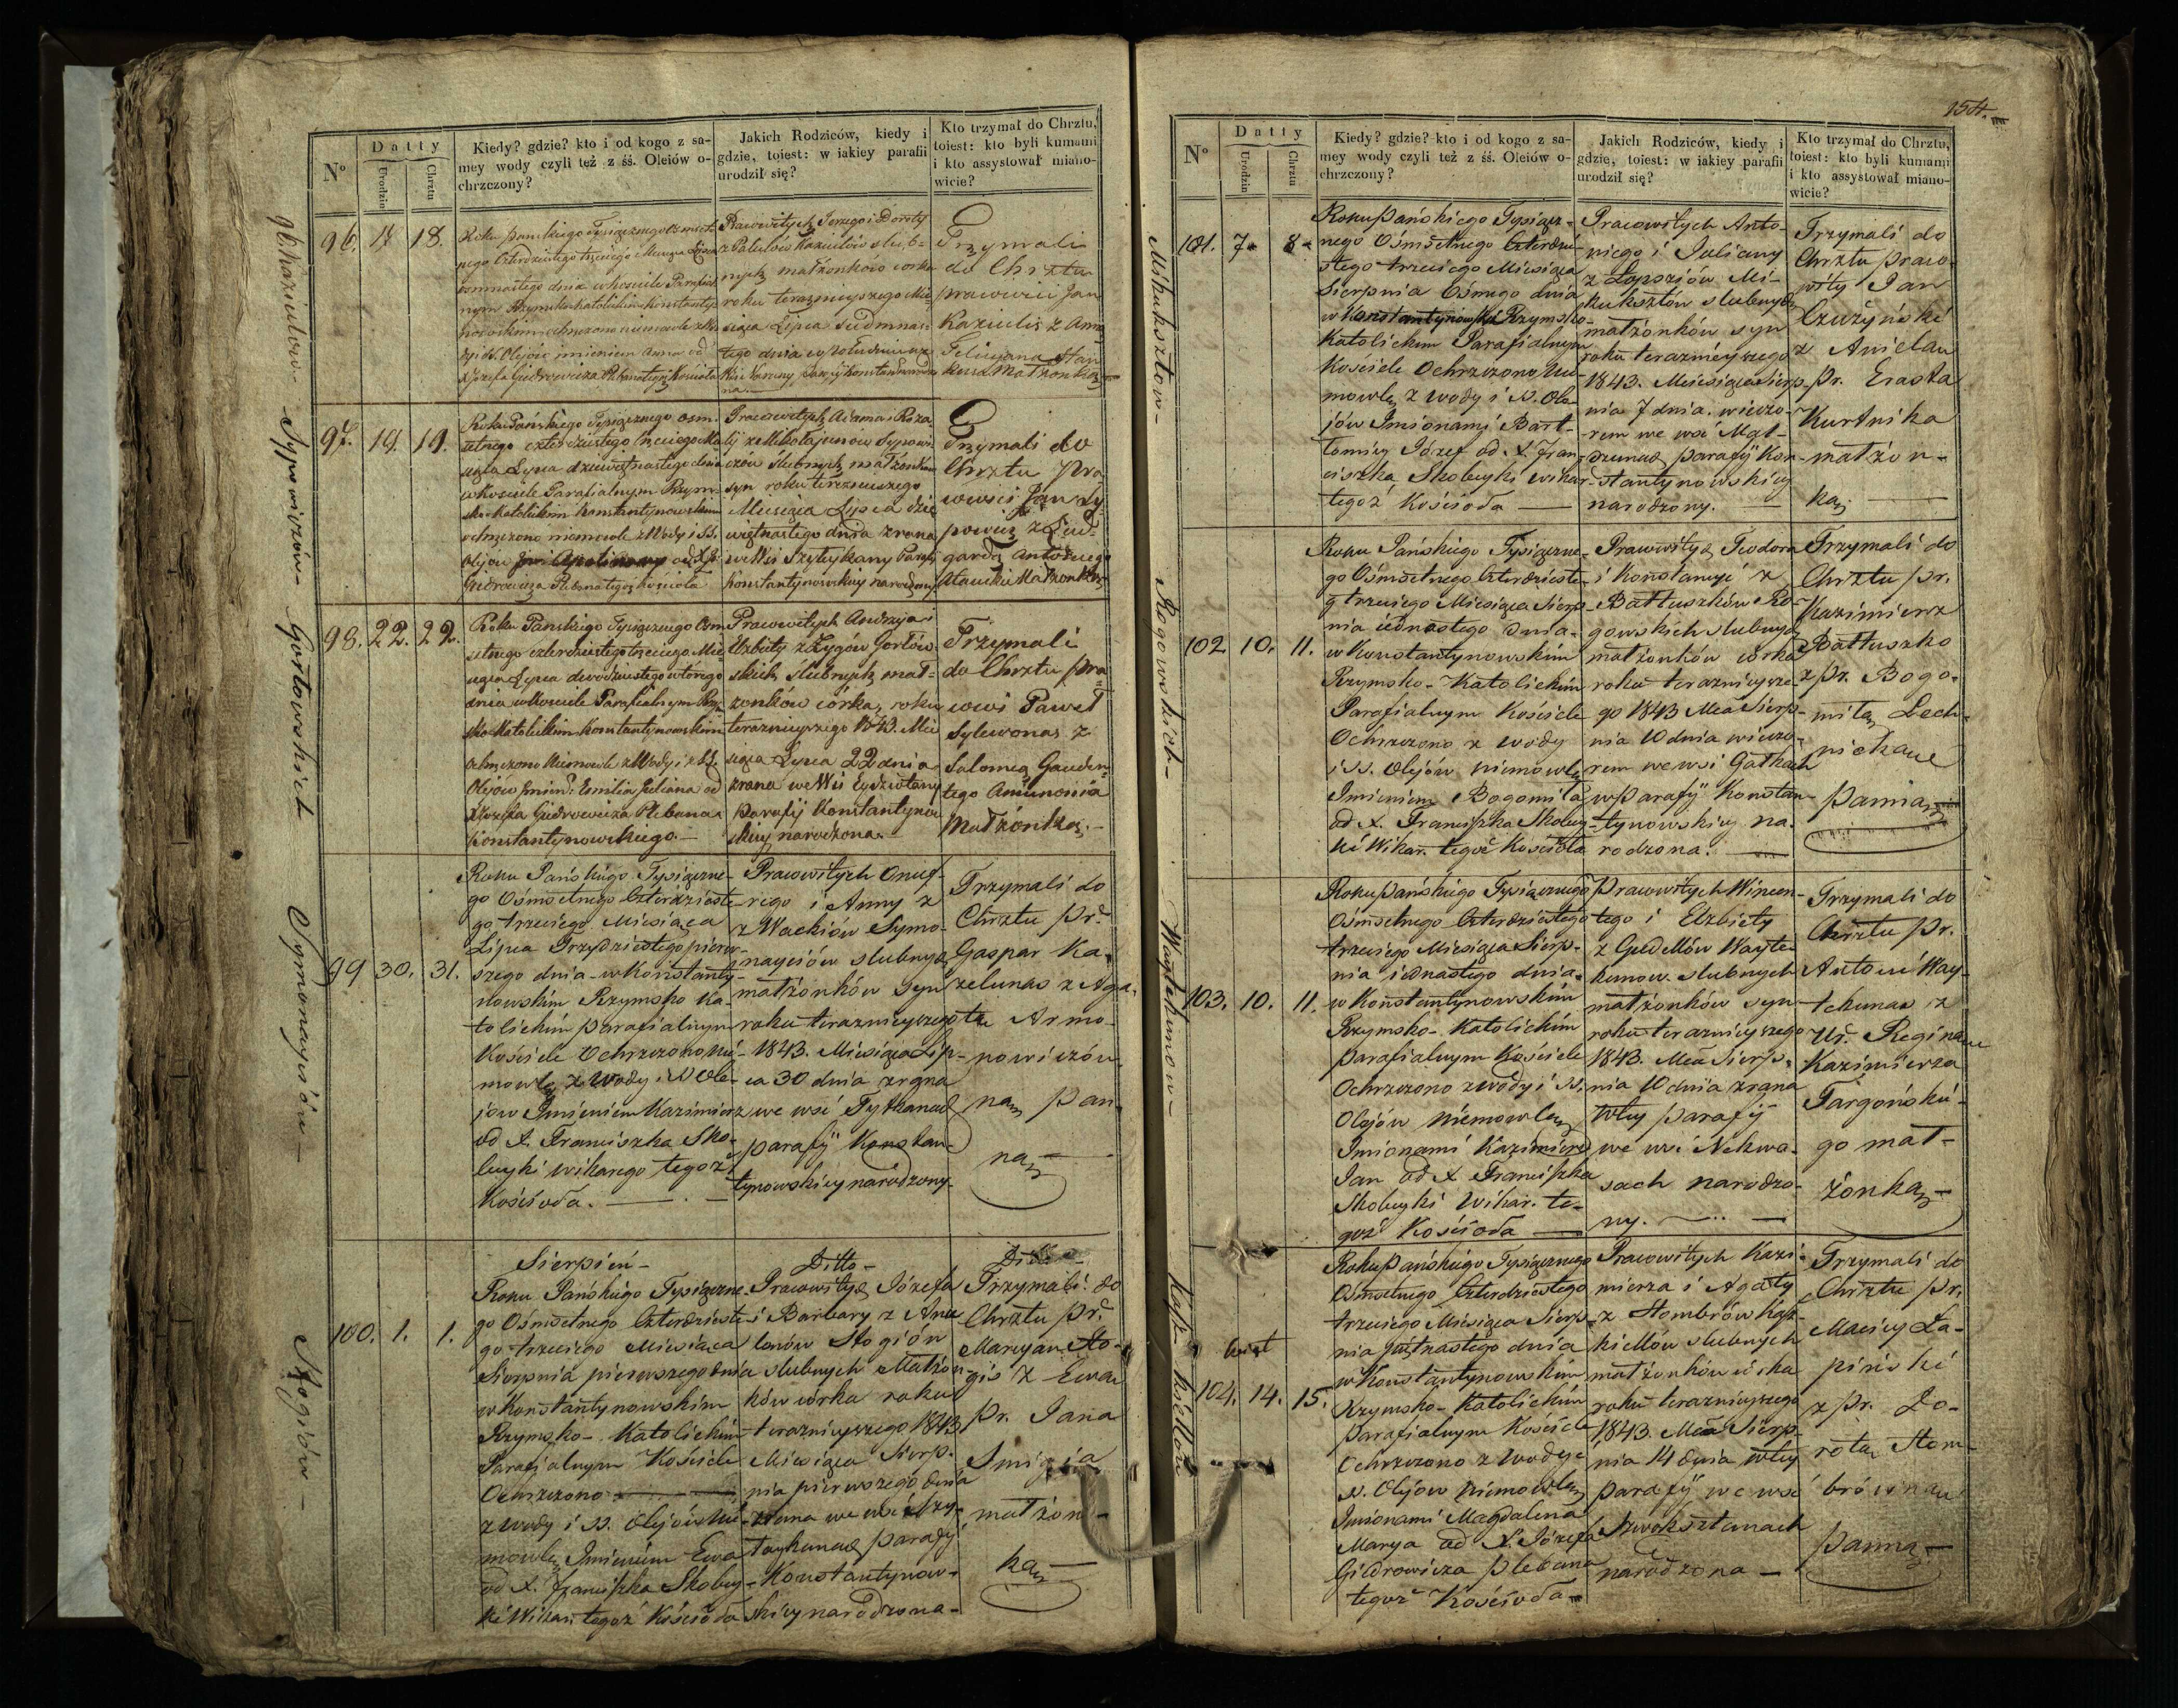 154.
N°
Datty
Urodzin
Chrztu
Kiedy? gdzie? kto i od kogo z sa-
mey wody czyli też z śś. Oleiów o-
chrzczony?
Jakich Rodziców, kiedy i
gdzie, toiest: w iakiey parafii
urodził się?
Kto trzymał do Chrztu,
toiest: kto byli kumami
i kto assystował miano-
wicie?
96.
18.
Roku Pańskiego Tysiącznego Osmset-
nego Czterdziestego trzeciego Miesiąca Lipca
osmnastego dnia w Kosciele Parafial-
nym Rzymsko Katolickim Konstanty-
nowskim ochrzczono niemowle z Wo-
dy i SS. Olejów imieniem Anna od
X Józefa Giedrowicza Plebana tegoż Kościoła
Prawowitych Jerzego i Doroty
z Kaziulów ślub-
nych małżonków corka
roku teraznieyszego Mie-
siąca Lipca siedmnas-
tego dnia
Trzymali
do Chrztu
prawowici Jan
Kaziulis z Anną
Felicyana Stan
Małżonką
97.
19.
19.
Roku Pańskiego Tysiącznego osm-
setnego czterdziestego trzeciego Mie-
siąca Lipca dziewiętnastego dnia
w Kosciele Parafialnym Rzym-
sko Katolickim Konstantynowskim
ochrzczono niemowle z Wody i SS.
Olejów od X J.
Giedrowicza Plebana tegoż Kościoła
Prawowitych Adama i Roza-
lij z Mikołajunow Sypowi-
czów ślubnych małżonków
syn roku teraznieyszego
Miesiąca Lipca dzie-
więtnastego dnia z rana
we Wsi Szytykany Parafij
Konstantynowskiey narodzony
Trzymali do
Chrztu Pra
wowici Jan Sy-
powicz z Lud-
gardą Antoniego
Małżonką
98.
22.
22.
Roku Pańskiego Tysiącznego Osm
setnego czterdziestego trzeciego Mie
siąca Lipca dwudziestego wtorego
dnia w Kosciele Parafialnym Rzym
sko Katolickim Konstantynowskim
ochrzczono Niemowle z Wody i z SS.
Olejów Imion: Emilia Juliana od
X Józefa Giedrowicza Plebana
Konstantynowskiego.
Prawowitych Andrzeja i
Elżbiety z Żygów Gorłow-
skich ślubnych mał-
żonków córka, roku
teraznieyszego 1843. Mie
siąca Lipca 22 dnia
z rana we Wsi
Parafij Konstantynow
skiey narodzona.
Trzymali
do Chrztu pra-
wowi Paweł
Sylewonas z
Salomeą Gauden-
tego
Małżonką.
99
30.
31.
Roku Pańskiego Tysiączne-
go Ośmsetnego Czterdzieste-
go trzeciego Miesiąca
Lipca Trzydziestego pierw-
szego dnia w Konstanty-
nowskim Rzymsko Ka-
tolickim parafialnym
Kościele Ochrzczono Nie-
mowlę z Wody i SS Ole-
jow Imieniem Kazimierz
od X. Franciszka Sko-
buyki wikarego tegoż
Kościoła.
Prawowitych Onuf-
rego i Anny z
z Wackiów Symo-
nayciów slubnych
małżonków syn
roku teraznieyszego
1843. Miesiąca Lip-
ca 30 dnia z rana
we wsi Tytkanach
parafij Konstan-
tynowskiey narodzony.
Trzymali do
Chrztu Pr.
Gaspar Ka-
zelunas z Aga-
tą Armo-
nowiczów-
ną Pan-
ną
100.
1.
1.
Sierpień
Roku Pańskiego Tysiączne-
go Ośmsetnego Czterdzieste-
go trzeciego Miesiąca
Sierpnia pierwszego dnia
w Konstantynowskim
Rzymsko-Katolickim
Parafialnym Kościele
Ochrzczono
z wody i SS. Olejów Nie-
mowlę Imieniem Ewa
od X. Franciszka Skobuy-
ki Wikar. tegoż Kościoła
Ditto
Prawowitych Józefa
i Barbary z
Stogiów
slubnych Małżon-
ków córka roku
teraznieyszego 1843
Miesiąca Sierp-
nia pierwszego dnia
z rana we wsi
parafij
Konstantynow-
skiey narodzona
Ditto
Trzymali do
Chrztu Pr.
Maryan Sto-
gis z Ewą
Pr. Jana
Smigia
małżon-
ką
96. Kaziulow-
Sypowiczów-
Gorłowskich
Symonayciów-
Stogiów-
N°
Datty
Urodzin
Chrztu
Kiedy? gdzie? kto i od kogo z sa-
mey wody czyli też z śś. Oleiów o-
chrzczony?
Jakich Rodziców, kiedy i
gdzie, toiest: w iakiey parafii
urodził się?
Kto trzymał do Chrztu,
toiest: kto byli kumami
i kto assystował miano-
wicie?
101.
7
8
Roku Pańskiego Tysiącz-
nego Ośmsetnego Czterdzie-
stego trzeciego Miesiąca
Sierpnia Ósmego dnia
w Konstantynowskim Rzymsko-
Katolickim Parafialnym
Kościele Ochrzczono Nie-
mowlę z wody i SS. Ole-
jów Imionami Bart-
łomiey Józef od X. Fran-
ciszka Skobuyki wikar-
tegoż Kościoła
Prawowitych Anto-
niego i Julianny
z Łopsziów Mi-
kuksztow slubnych
małżonków syn
roku teraznieyszego
1843. Miesiąca Sierp-
nia 7 dnia wieczo-
rem we wsi
parafij Kon-
stantynowskiey
narodzony.
Trzymali do
Chrztu prawo-
wity Jan
Czużyński
z Anielą
Pr. Erazta
Kurtnika
małżon-
ką
102
10.
11.
Roku Pańskiego Tysiączne-
go Ośmsetnego Czterdzieste-
g trzeciego Miesiąca Sierp-
nia iednastego dnia
w Konstantynowskim
Rzymsko-Katolickim
Parafialnym Kościele
Ochrzczono z wody
i SS. Olejów niemowlę
Imieniem Bogomiła
od X. Franciszka Skobuy-
ki Wikar. tegoż Kościoła
Prawowitych Teodora
i Konstancyi z
Bałtuszków Ro-
gowskich slubnych
małżonków córka
roku teraznieysze-
go 1843 Mca Sierp-
nia 10 dnia wieczo-
rem we wsi Gaťkach
w Parafij Konstan-
tynowskiey na-
rodzona.
Trzymali do
Chrztu Pr.
Kazimierz
Bałtuszko
z Pr. Bogo-
miłą Lech-
nickanc
Panną
103.
10.
11.
Roku Pańskiego Tysiącznego
Ośmsetnego Czterdziestego
trzeciego Miesiąca Sierp-
nia iednastego dnia
w Konstantynowskim
Rzymsko-Katolickim
parafialnym Kościele
Ochrzczono z wody i SS.
Olejów Niemowlę
Imionami Kazimierz
Jan od X. Franciszka
Skobuyki Wikar. te-
goż Kościoła
Prawowitych Wincen-
tego i Elżbiety
z Gudellów Wayte-
kunow. slubnych
małżonków syn
roku teraznieyszego
1843. Mca Sierp-
nia 10 dnia z rana
tey parafij
we wsi Nekwa-
sach narodzo-
ny.
Trzymali do
Chrztu Pr.
Antoni Way-
tekunas z
Ur. Reginą
Kazimierza
Targońskie-
go mał-
żonką
104.
14.
15.
Roku Pańskiego Tysiącznego
Ośmsetnego Czterdziestego
trzeciego Miesiąca Sierp-
nia piętnastego dnia
w Konstantynowskim
Rzymsko-Katolickim
parafialnym Kościele
Ochrzczono z wody i
SS. Olejów niemowlę
Imionami Magdalena
Marya od X. Józefa
Gidrowicza plebana
tegoż Kościoła
Prawowitych Kazi-
mierza i Agaty
z Stombrów Kasz-
kiełłów slubnych
małżonków córka
roku teraznieyszego
1843. Mca Sierp-
nia 14 dnia w tey
parafij we wsi
Szwaksztanach
narodzona
Trzymali do
Chrztu Pr.
Maciey Ła-
piński
z Pr. Do-
rotą Stom-
brówną
Panną
Mikuksztow-
Rogowskich-
Waytekunow-
Kaszkiełłow